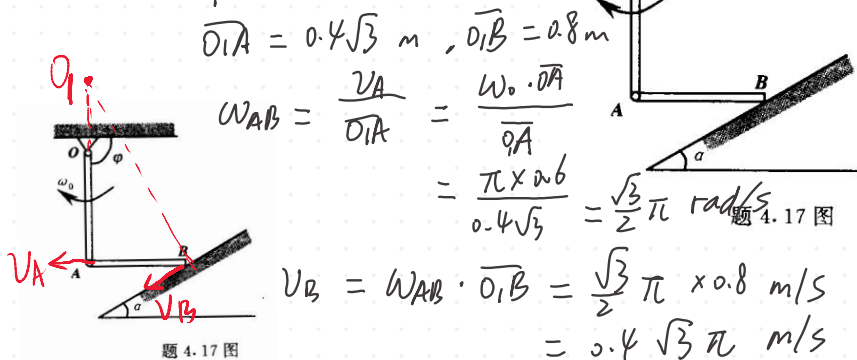 O₁A = 0.4√3 m , O₁B = 0.8m
ω_AB = v_A / O₁A = ω₀ · OA / O₁A
= π×0.6 / 0.4√3 = √3/2 π rad/s
v_B = ω_AB · O₁B = √3/2 π ×0.8 m/s
= 0.4√3 π m/s
O₁
O
φ
ω₀
V_A
A
B
V_B
α
题 4.17 图
A
B
α
题 4.17 图